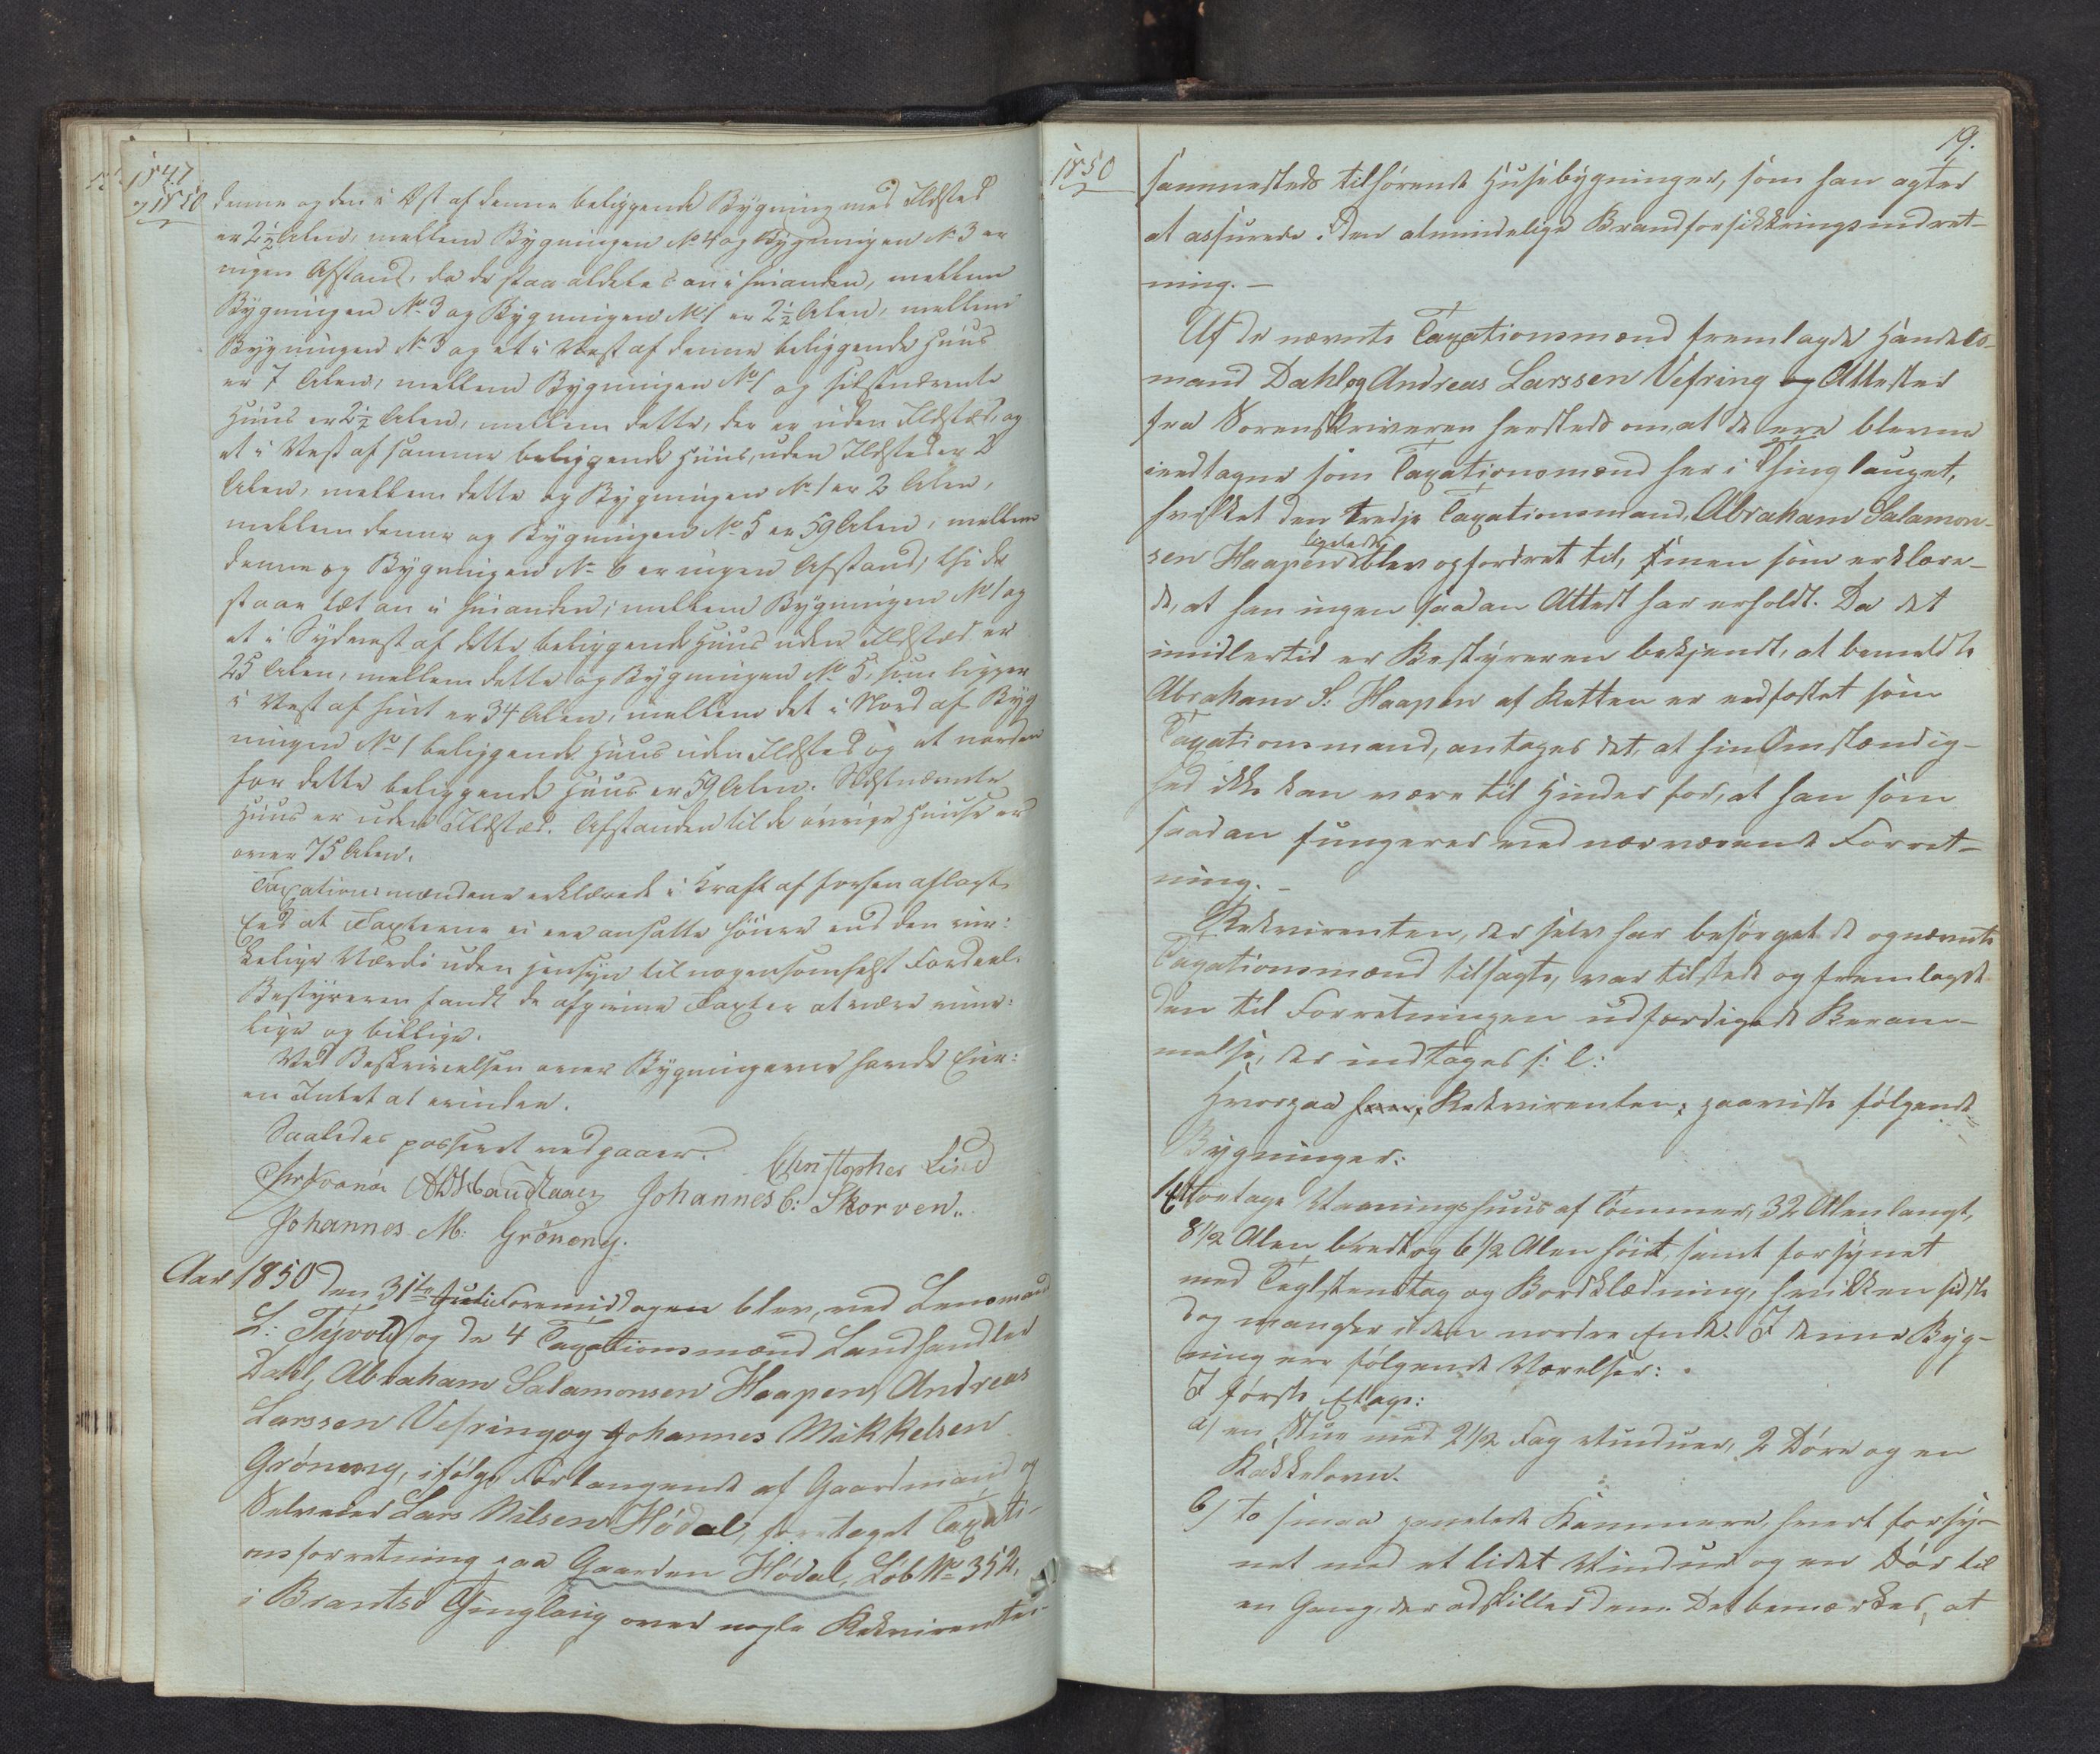 1847
og 1850
denne og den i Øst af denne beliggende Bygning med Ildsted
er 2½ Alen, mellem Bygningen No 4 og Bygningen No 3 er
ingen Afstand, da de staa aldeles an i hinanden, mellem
Bygningen No 3 og Bygningen No 1 er 2½ Alen, mellem
Bygningen No 3 og et i Vest af denne beliggende Huus
er 7 Alen, mellem Bygningen No 1 og sidstnævnte
Huus er 2½ Alen, mellem dette, der er uden Ildsted, og
et i Vest af samme beliggende Huus, uden Ildsted er 2
Alen, mellem dette og Bygningen No 1 er 2 Alen,
mellem denne og Bygningen No 5 er 59 Alen, mellem
denne og Bygningen No 6 er ingen Afstand, thi de
staae tæt an i hinanden, mellem Bygningen No 1 og
et i Sydvest af dette beliggende Huus uden Ildsted er
25 Alen, mellem dette og Bygningen No 5, som ligger
i Vest af hint er 34 Alen, mellem det i Nord af Byg
ningen No 1 beliggende Huus uden Ildsted og et norden
for dette beliggende Huus er 59 Alen. Sidstnævnte
Huus er uden Ildsted. Afstanden til de øvrige Huuse er
over 75 Alen.
Taxationsmændene erklærede i Kraft af forhen aflagt
Eed at Taxterne ei ere ansatte høiere end den vir:
kelige Værdi uden Hensyn til nogensomhelst Fordeel.
Bestyreren fandt de afgivne Taxter at være rime:
lige og billige.
Ved Beskrivelsen over Bygningerne havde Eier:
en Intet at erindre.
Saaledes passeret vedgaaer.
Christopher Lind
Johannes C: Skorven.
Johannes M: Grønøng.
Aar 1850 den 31te Juli Formiddagen blev, ved Lensmand
L: Tyvold og de 4 Taxationsmænd Landhandler
Dahl, Abraham Salamonsen Haapen, Andreas
Larssen Vefring og Johannes Mikkelsen
Grønøng, ifølge Forlangende af Gaardmand og
Selveier Lars Nilsen Hødal, foretaget Taxati-
onsforretning paa Gaarden Hødal, Løb No 352,
i Brandsø Thinglaug over nogle Rekvirenten
1850
19.
sammesteds tilhørende Husebygninger, som han agter
at assurere i den almindelige Brandforsikkringsindret-
ning. –
Af de nævnte Taxationsmænd fremlagde Handels-
mand Dahl og Andreas Larssen Vefring og Attester
fra Sorenskriveren hersteds om, at de ere blevne
eedtagne som Taxationsmænd her i Thinglauget,
hvilket den tredje Taxationsmand, Abraham Salamon-
ligeledes
sen Haapen blev opfordret til, men som erklære-
de, at han ingen saadan Attest har erholdt. Da det
imidlertid er Bestyreren bekjendt, at bemeldte
Abraham S: Haapen af Retten er eedfæstet som
Taxationsmand, antages det, at hin Omstændig-
hed ikke kan være til Hinder for, at han som
saadan fungerer ved nærværende Forret-
ning. –
Rekvirenten, der selv har besørget de opnævnte
Taxationsmænd tilsagte, var tilstede og fremlagde
den til Forretningen udfærdigede Beram-
melse, der indtages s: l:
Hvorpaa Rekvirenten paaviste følgende
Bygninger:
1. Et toetages Vaaningshuus af Tømmer, 32 Alen langt,
8 1/2 Alen bredt og 6 1/2 Alen høit, samt forsynet
med Teglstenstag og Bordklædning, hvilken sidste
dog mangler i den nordre Ende. I denne Byg-
ning ere følgende Værelser:
I første Etage:
a) en Stue med 2 1/2 Fag Vinduer, 2 Døre og en
Kakkelovn.
b) to smaa panelede Kammere, hvert forsy-
net med et lidet Vindue og en Dør til
en Gang, der adskiller dem. Det bemærkes, at